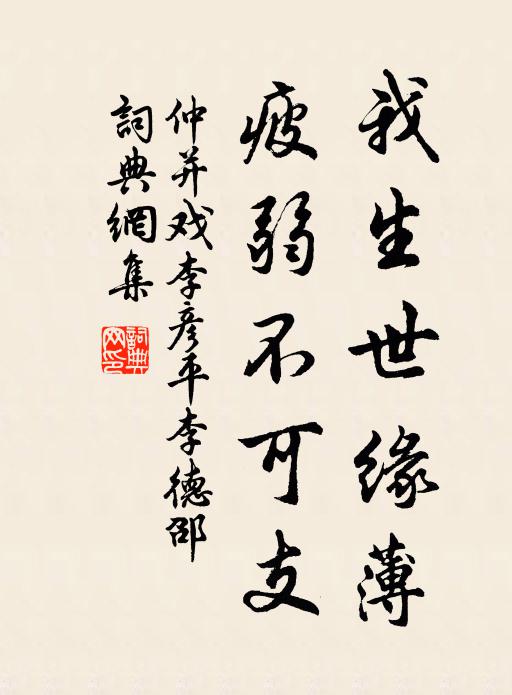 我生世缘薄
疲弱不可支
仲并戏李彦平李德邵
詞典網集
詞典网印